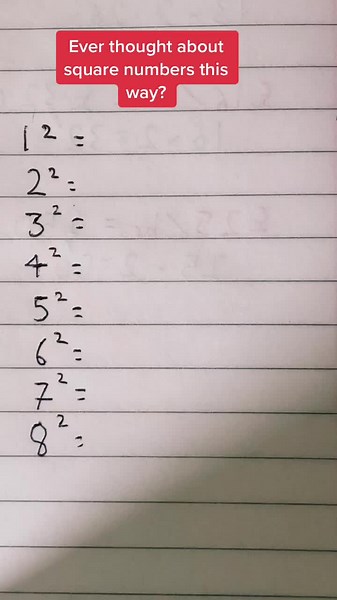 Ever thought about
square numbers this
way?
1² =
2² =
3² =
4² =
5² =
6² =
7² =
8² =